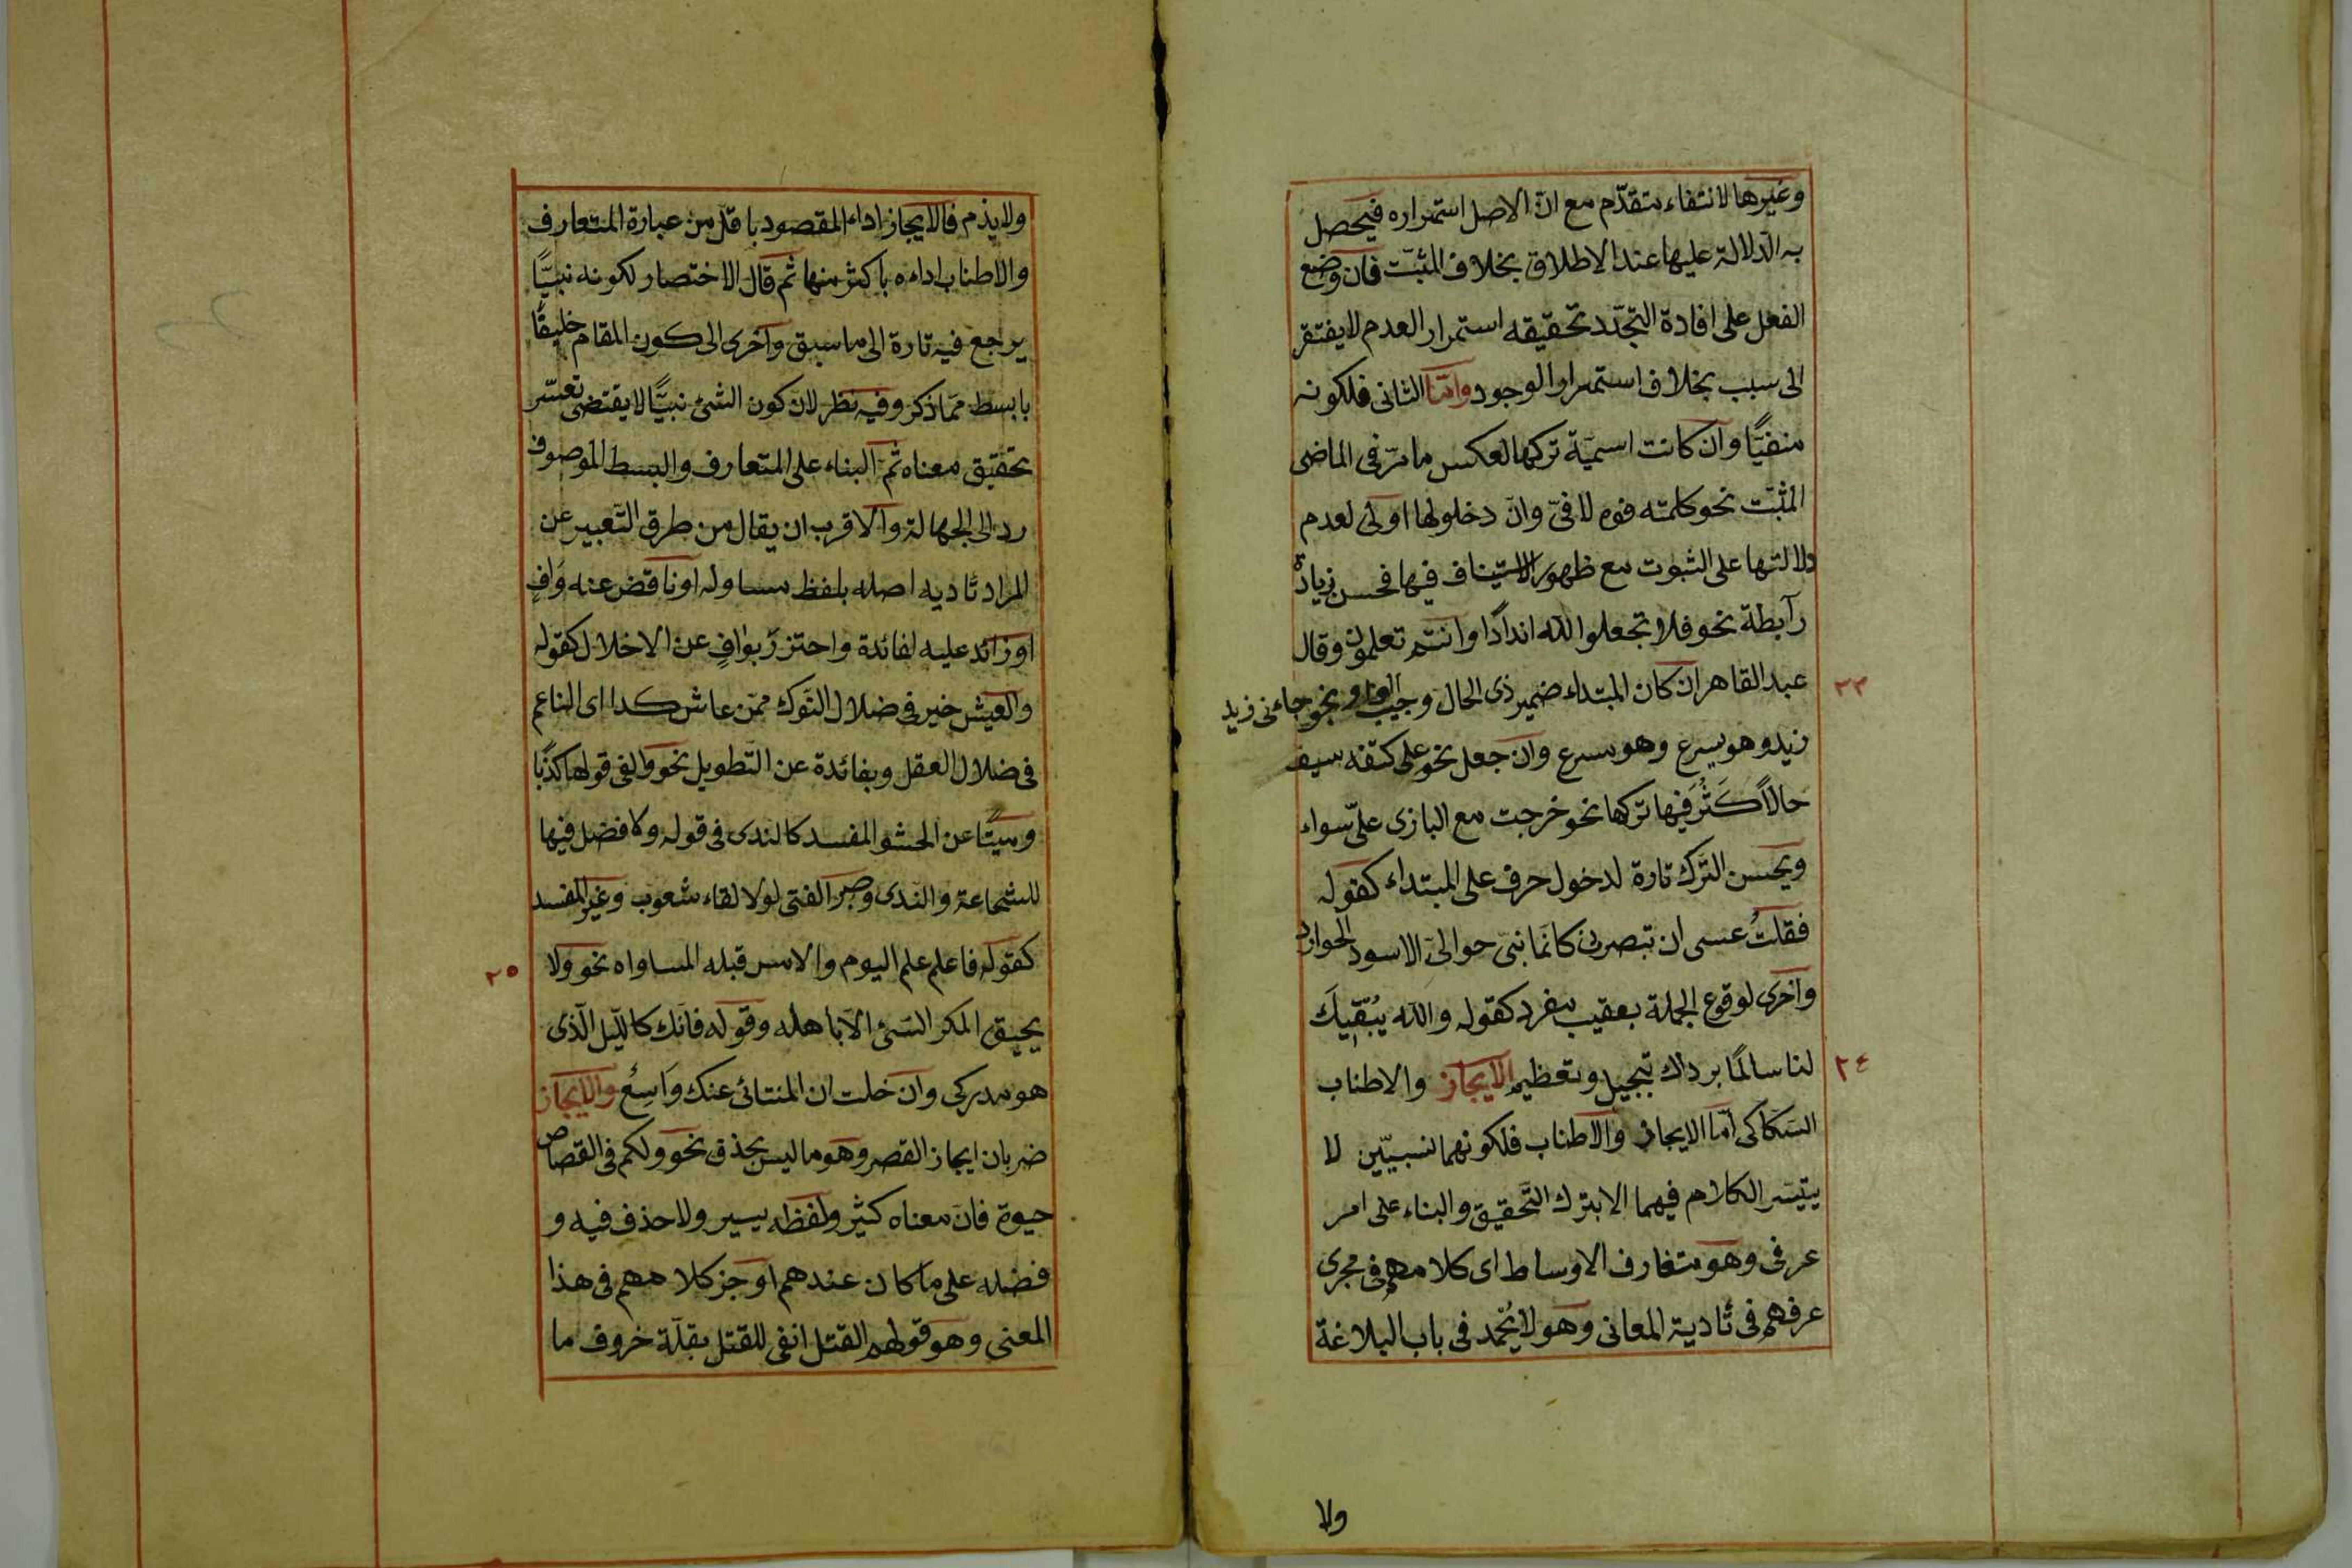 وغيرها لانتفاء متقدّم مع انّ الاصل استمراره فيحصل
به الدّلالة عليها عند الاطلاق بخلاف المثبّت فان وضع
الفعل على افادة التجدّد تحقيقه استمرار العدم لا يفتقر
الى سبب بخلاف استمرار الوجود وامّا الثانى فلكونه
منفيًّا وان كانت اسميّة تركها لعكس ما مرّ فى الماضى
المثبّت نحو كلمته فوه لا فىّ وانّ دخولها اولى لعدم
دلالتها على الثبوت مع ظهور الاستيناف فيها فحسن زيادة
رابطة نحو فلا تجعلوا لله اندادًا وانتم تعلمون وقال
عبد القاهر ان كان المبتداء ضمير ذى الحال وجبت الواو نحو جاءنى زيد
٢٣
زيد وهو يسرع وهو مسرع وان جعل نحو على كتفه سيف
حالًا كَثُرَ فيها تركها نحو خرجت مع البازى علىّ سواء
ويحسن التّرك تارة لدخول حرف على المبتداء كقوله
فقلتُ عسى ان تبصرين كانّما بنىّ حوالىّ الاسود الحوارد
واخرى لوقوع الجملة بعقيب مفرد كقوله والله يُبَقّيكَ
لنا سالمًا برداك تبجيل وتعظيم الايجاز والاطناب
٢٤
السّكاكى امّا الايجاز والاطناب فلكونهما نسبيّين لا
يتيسّر الكلام فيهما الا بترك التّحقيق والبناء على امر
عرفى وهو متعارف الاوساط اى كلامهم فى مجرى
عرفهم فى تادية المعانى وهو لا يُحمد فى باب البلاغة
ولا
ولا يذم فالايجاز اداء المقصود باقلّ من عبارة المتعارف
والاطناب اداءه باكثر منها ثم قال الاختصار لكونه نبيًّا
يرجع فيه تارة الى ما سبق واخرى الى كون المقام خليقًا
بابسط ممّا ذكر وفيه نظر لان كون الشئ نبيًّا لا يقتضى تعسّر
تحقيق معناه ثمّ البناء على المتعارف والبسط الموصوف
رد الى الجهالة والاقرب ان يقال من طرق التّعبير عن
المراد تاديه اصله بلفظ مساو له او ناقض عنه وَافٍ
او زائد عليه لفائدة واحترز بوافٍ عن الاخلال كقوله
والعيش خير فى ضلال النّوك ممّن عاش كدا اى الناعم
فى ضلال العقل وبفائدة عن التّطويل نحو والفى قولها كذبًا
وميتًا عن الحشو المفسد كالندى فى قوله ولا فضل فيها
للشجاعة والندى وصبر الفتى لولا لقاء شعوب وغير المفسد
كقوله فاعلم علم اليوم والامس قبله المساواه نحو ولا
٢٥
يحيق المكر السّئ الّا باهله وقوله فانّك كاللّيل الّذى
هو مدركى وان خلت ان المنتائى عنك وَاسِعُ والايجاز
ضربان ايجاز القصر وهو ما ليس بحذف نحو ولكم فى القصاص
حيوة فانّ معناه كثير ولفظه يسير ولا حذف فيه و
فضله على ما كان عندهم اوجز كلامهم فى هذا
المعنى وهو قولهم القتل انفى للقتل بقلّة خروف ما